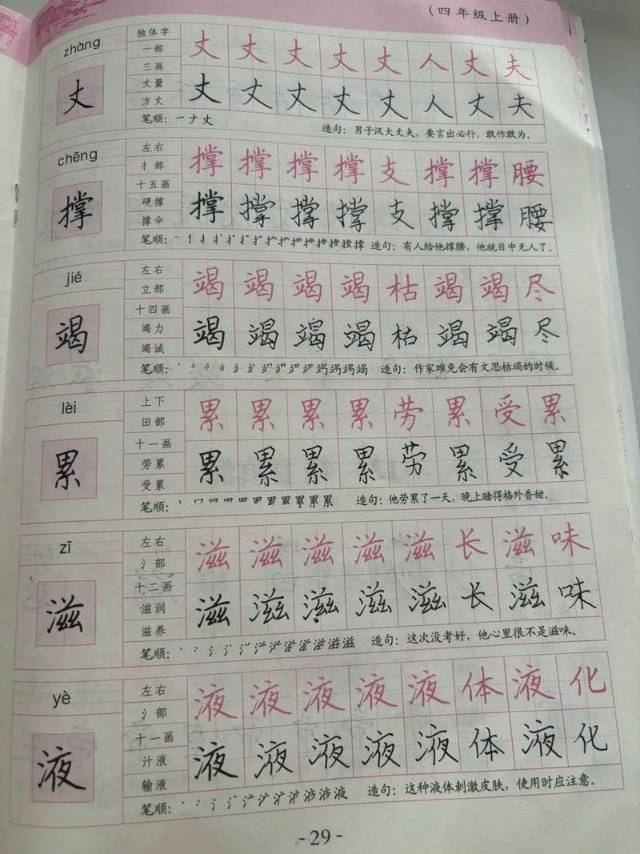 (四年级上册)
zhàng
丈
独体字
一部
三画
丈量
方丈
丈丈丈丈丈人丈夫
丈丈丈丈丈人丈夫
笔顺: 一ナ丈
造句: 男子汉大丈夫，要言出必行，敢作敢为。
chēng
撑
左右
扌部
十五画
硬撑
撑伞
撑撑撑撑支撑撑腰
撑撑撑撑支撑撑腰
笔顺:
造句: 有人给他撑腰，他就目中无人了。
jié
竭
左右
立部
十四画
竭力
竭诚
竭竭竭竭枯竭竭尽
竭竭竭竭枯竭竭尽
笔顺:
造句: 作家难免会有文思枯竭的时候。
lèi
累
上下
田部
十一画
劳累
受累
累累累累劳累受累
累累累累劳累受累
笔顺:
造句: 他劳累了一天，晚上睡得格外香甜。
zī
滋
左右
氵部
十二画
滋润
滋养
滋滋滋滋滋长滋味
滋滋滋滋滋长滋味
笔顺:
造句: 这次没考好，他心里很不是滋味。
yè
液
左右
氵部
十一画
汁液
输液
液液液液液体液化
液液液液液体液化
笔顺:
造句: 这种液体刺激皮肤，使用时应注意。
-29-